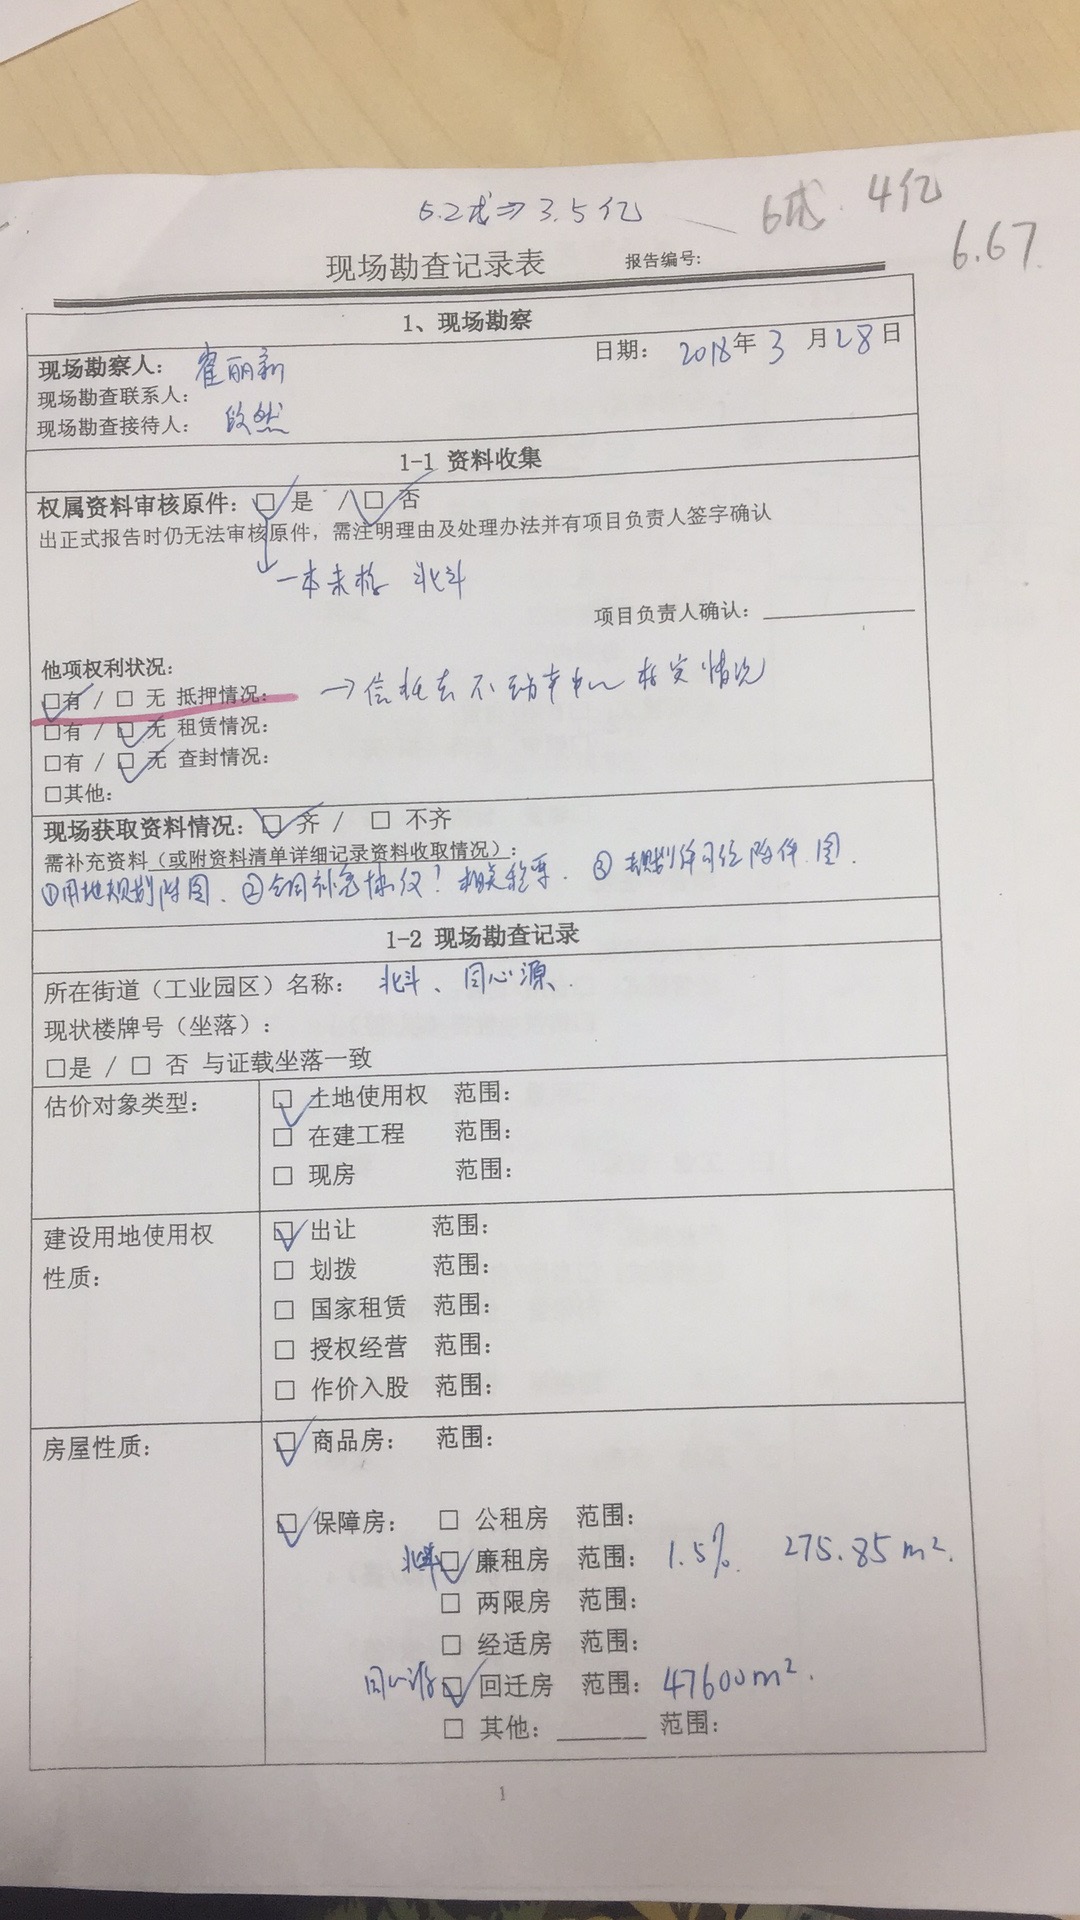 5.2成⇒3.5亿
6成. 4亿
6.67.
现场勘查记录表 报告编号:
1、现场勘察
现场勘察人: 霍丽新 日期: 2018年 3 月28日
现场勘查联系人:
现场勘查接待人: 段然
1-1 资料收集
权属资料审核原件: □ 是 /□ 否
出正式报告时仍无法审核原件，需注明理由及处理办法并有项目负责人签字确认
一本未核 北斗
项目负责人确认:
他项权利状况:
□有 / □ 无 抵押情况: → 信托去不动产中心核实情况
□有 / □ 无 租赁情况:
□有 / □ 无 查封情况:
□其他:
现场获取资料情况: □ 齐 / □ 不齐
需补充资料(或附资料清单详细记录资料收取情况):
①用地规划附图、②合同补充协议! 相关税票、③规划许可证附件.图.
1-2 现场勘查记录
所在街道（工业园区）名称: 北斗、同心源.
现状楼牌号（坐落）:
□是 / □ 否 与证载坐落一致
估价对象类型: □ 土地使用权 范围:
□ 在建工程 范围:
□ 现房 范围:
建设用地使用权 □ 出让 范围:
性质: □ 划拨 范围:
□ 国家租赁 范围:
□ 授权经营 范围:
□ 作价入股 范围:
房屋性质: □ 商品房: 范围:
□ 保障房: □ 公租房 范围:
北斗 □ 廉租房 范围: 1.5%. 275.85m².
□ 两限房 范围:
□ 经适房 范围:
同心源 □ 回迁房 范围: 47600m².
□ 其他: ______ 范围:
1